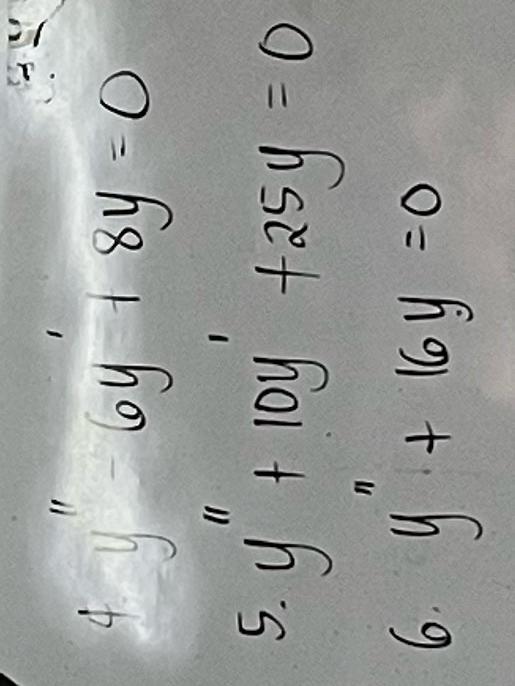 4. y" - 6y' + 8y = 0
5. y" + 10y' + 25y = 0
6. y" + 16y = 0